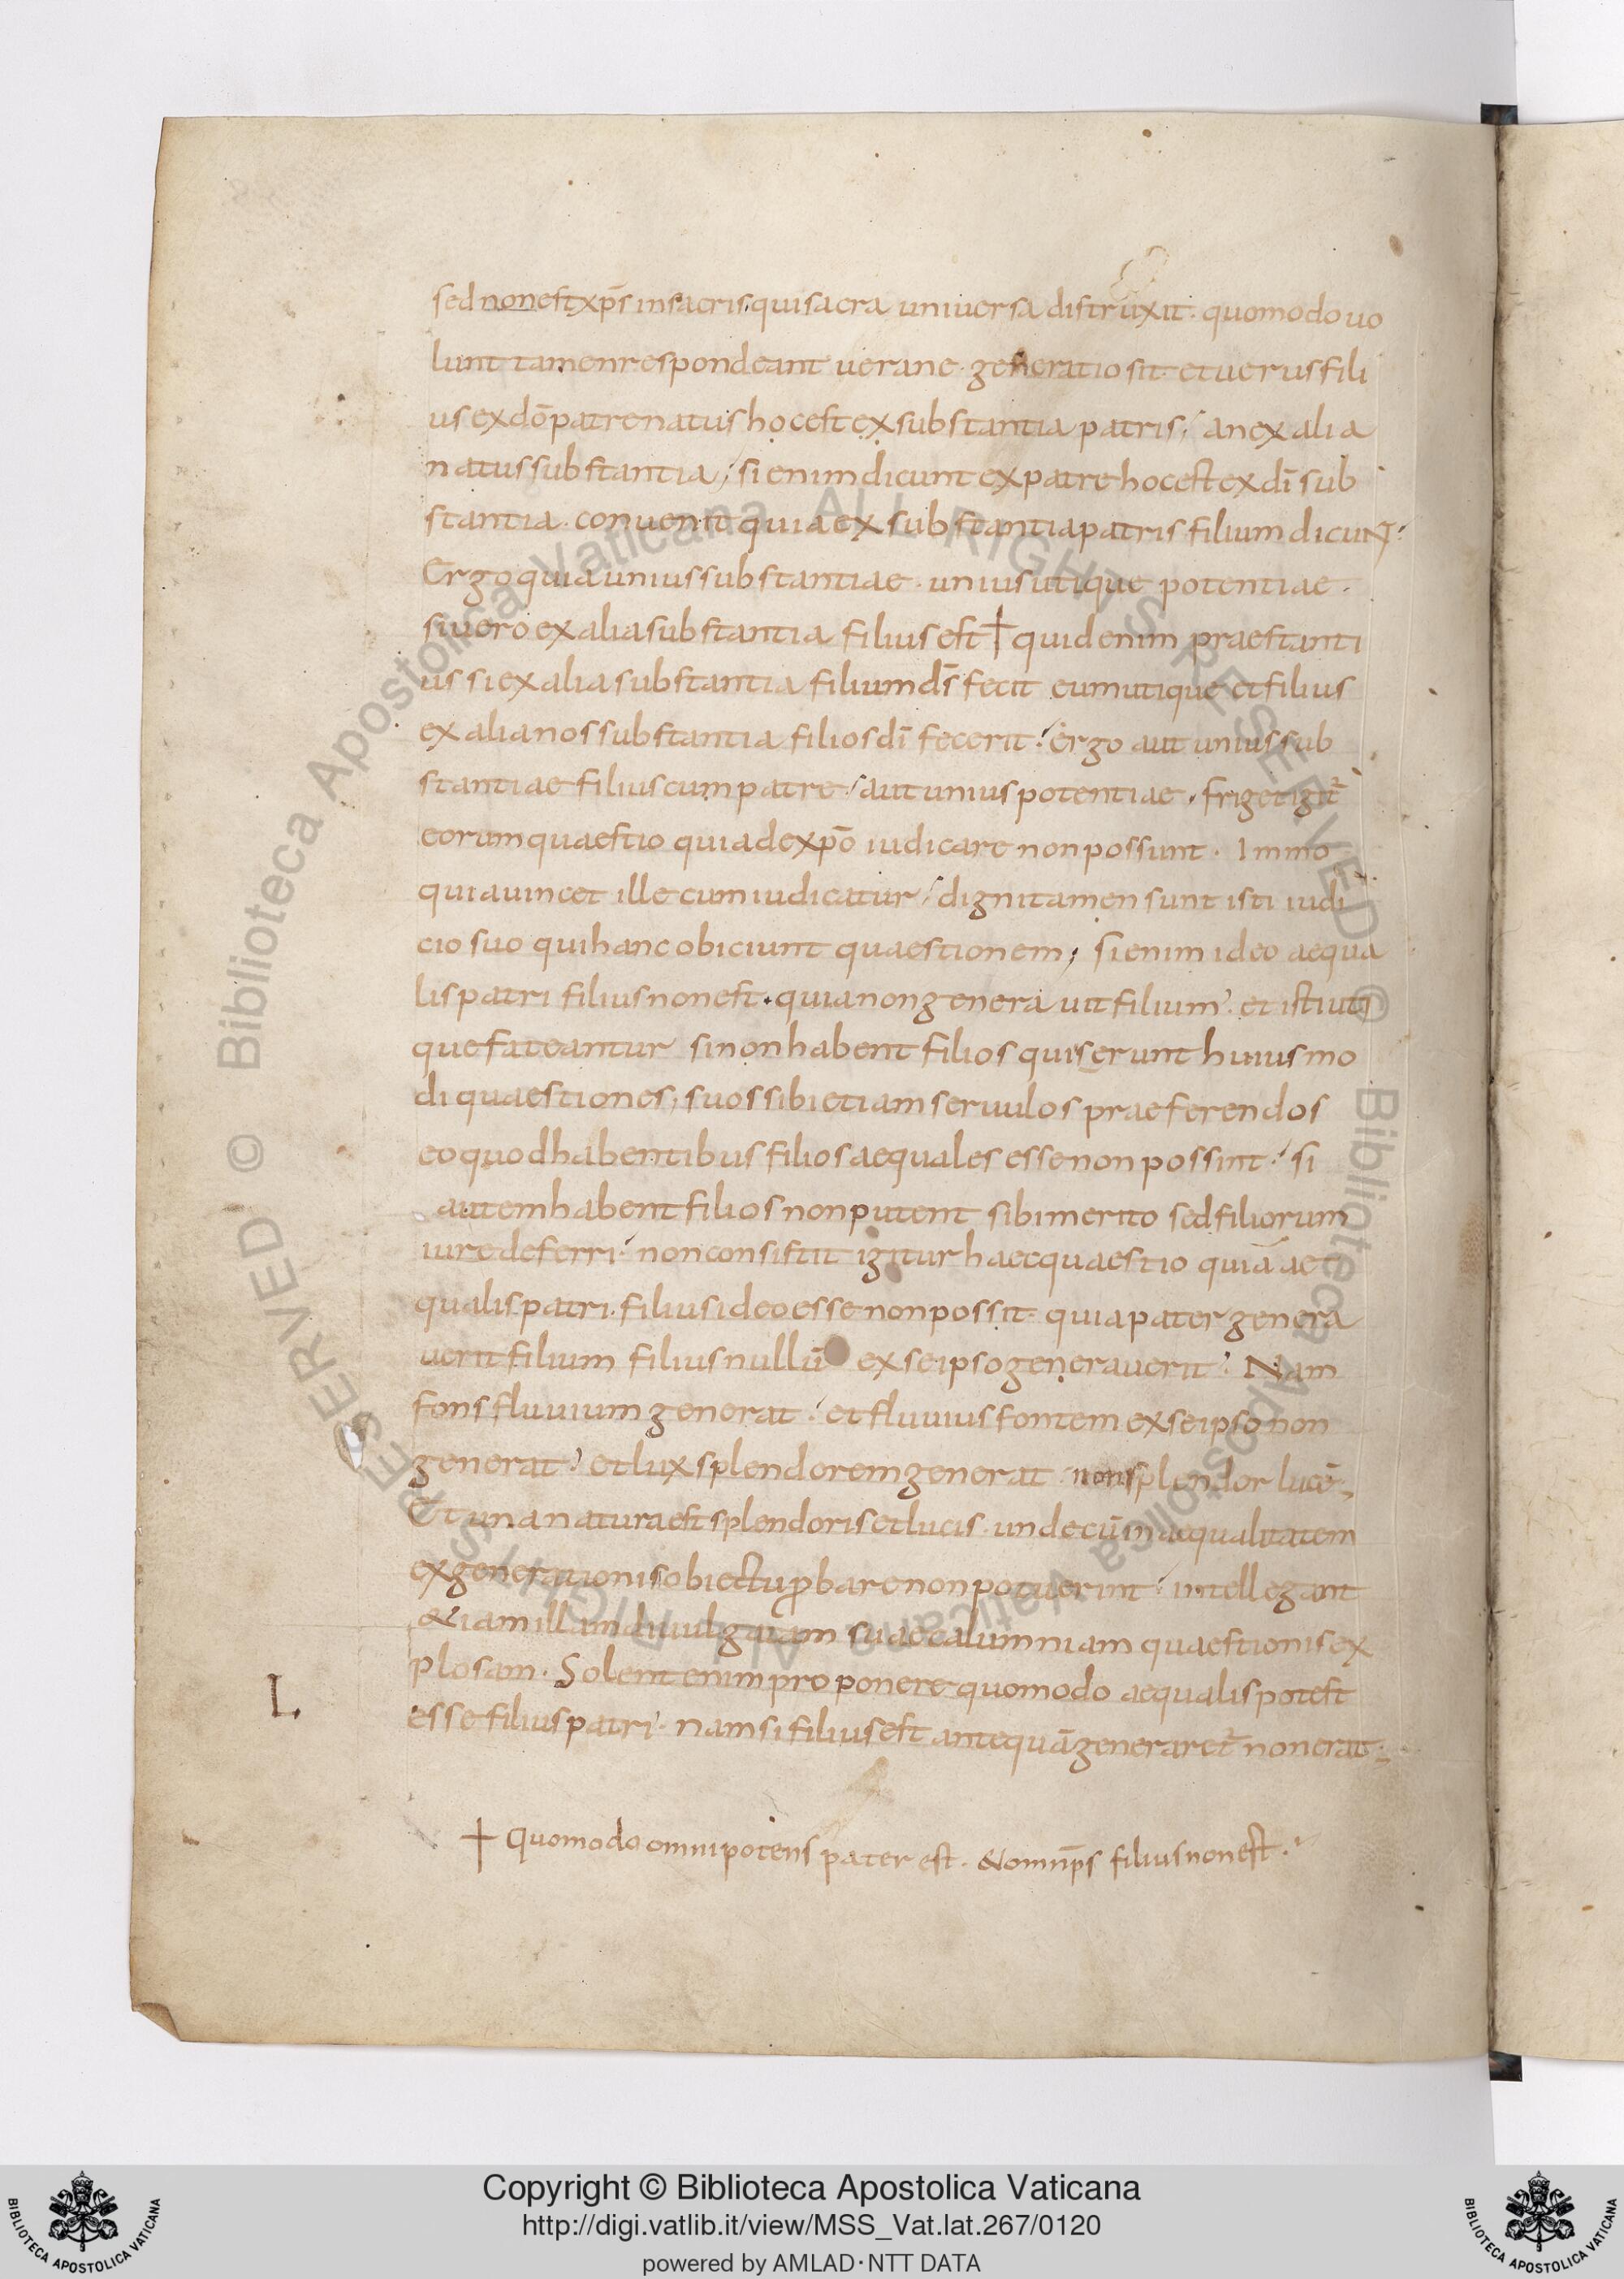 sed non est xp̄s in sacris qui sacra universa distruxit · quomodo uo
lunt tamen respondeant uerane · generatio sit · et uerus fili
us ex dō patre natus hoc est ex substantia patris; an ex alia
natus substantia; si enim dicunt ex patre hoc est ex dī sub
stantia · conuenit quia ex substantia patris filium dicuNT·
Ergo quia unius substantiae · unius utique potentiae ·
si uero ex alia substantia filius est † quid enim praestanti
us si ex alia substantia filium ds̄ fecit cum utique et filius
ex alia nos substantia filios dī fecerit · Ergo aut unius sub
stantiae filius cum patre · aut unius potentiae · friget igit̄
eorum quaestio quia de xpō iudicare non possunt · Immo
quia uincet ille cum iudicatur · digni tamen sunt isti iudi
cio suo qui hanc obiciunt quaestionem; si enim ideo aequa
lis patri filius non est · quia non generauit filium · et isti uti
que fateantur si non habent filios qui serunt huiusmo
di quaestiones; suos sibi etiam seruulos praeferendos
eo quod habentibus filios aequales esse non possint · si
autem habent filios non putent sibi merito sed filiorum
iure deferri · non consistit igitur haec quaestio quia ae
qualis patri · filius ideo esse non possit · quia pater genera
uerit filium filius nullū ex se ipso generauerit · Nam
fons fluuium generat · et fluuius fontem ex se ipso non
generat · et lux splendorem generat · non splendor lucē;
Et una natura est splendoris et lucis · unde cū inaequalitatem
ex generationis obiectu ꝓbare non potuerint · intellegant
& iam illam diuulgatam suae calumniam quaestionis ex
plosam · Solent enim proponere quomodo aequalis potest
L.
esse filius patri · nam si filius est antequā generaret̄ non erat ·
† Quomodo omnipotens pater est · & omnp̄s filius non est ·
Copyright © Biblioteca Apostolica Vaticana
http://digi.vatlib.it/view/MSS_Vat.lat.267/0120
powered by AMLAD · NTT DATA
BIBLIOTECA APOSTOLICA VATICANA
BIBLIOTECA APOSTOLICA VATICANA